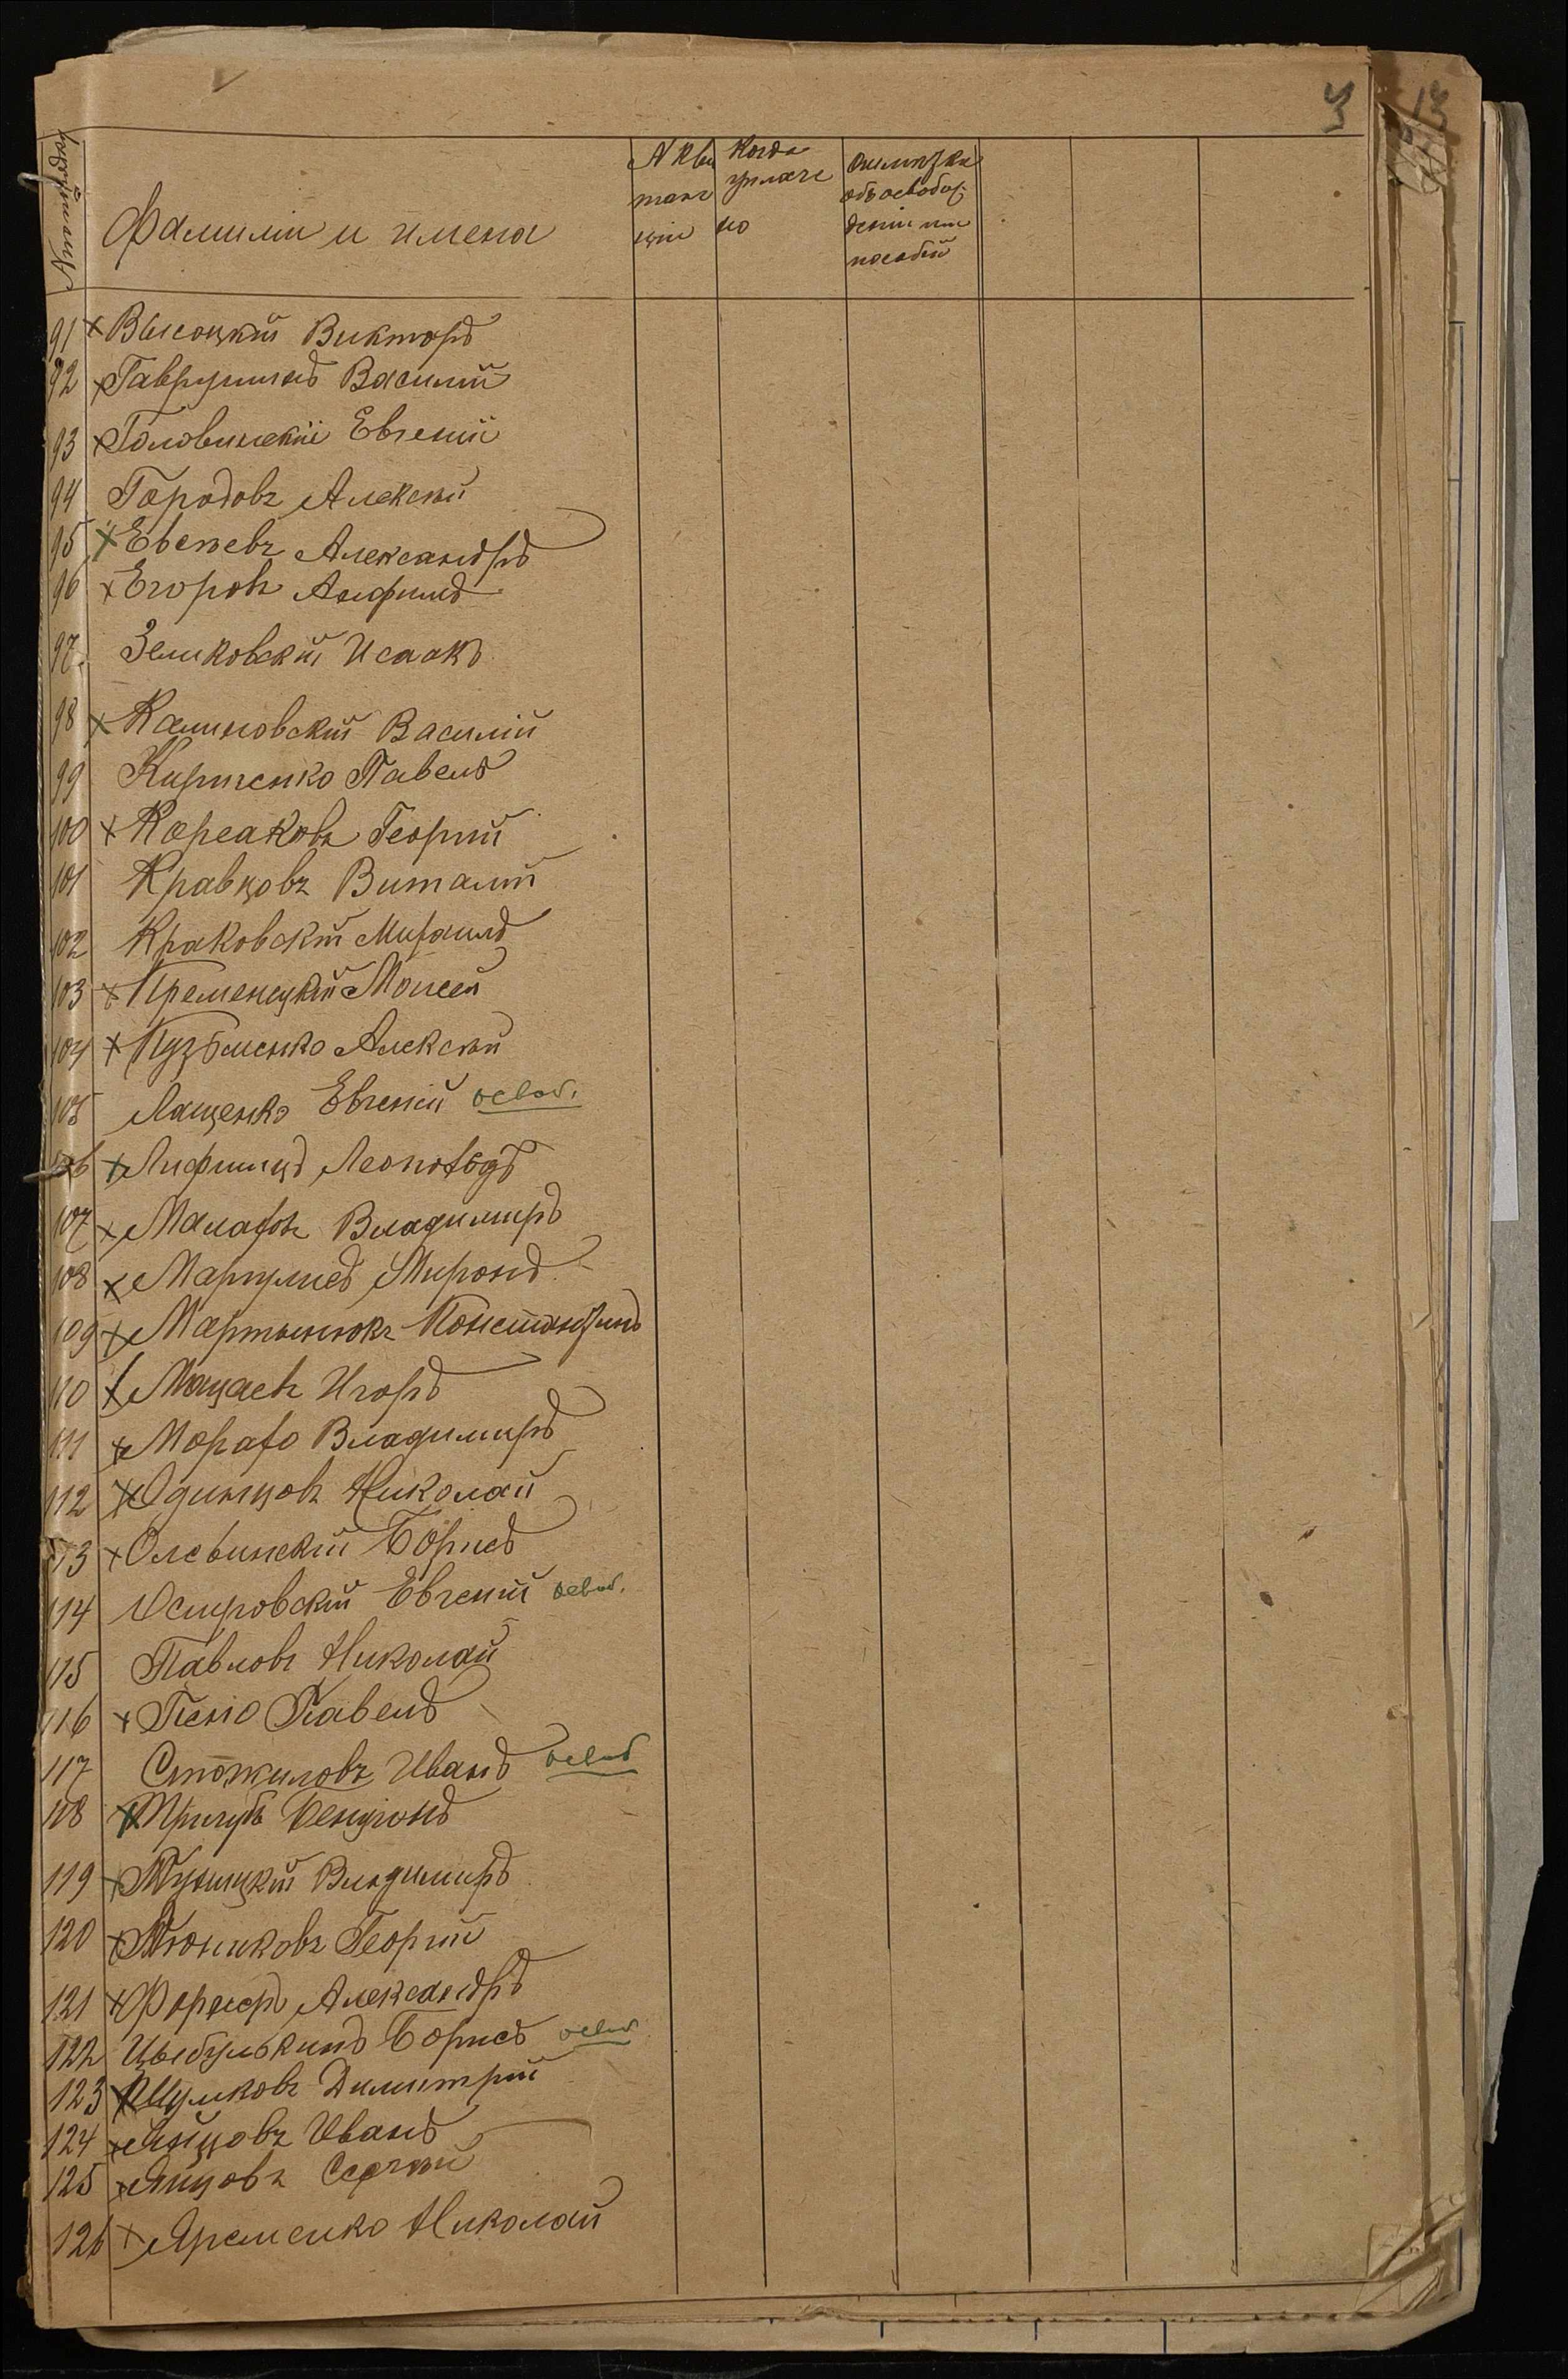 3
№ по порядку
Фамилии и имена
№ кви
танг
ціи
Когда
уплаче
но
Отмѣтка
объ освобож
деніи или
пособіи
91 × Высоцкій Викторъ
92 × Гаврушинъ Василій
93 × Головинскій Евгеній
94 Городовъ Алексѣй
95 × Евсѣевъ Александръ
96 × Егоровъ Анфимъ
97. Земковскій Исаакъ
98 × Калиновскій Василій
99 Кириченко Павелъ
100 × Корсаковъ Георгій
101 Кравцовъ Виталій
102 Краковскій Михаилъ
103 × Кременецкій Моисей
104 × Кузьменко Алексѣй
105 Лащенко Евгеній освоб.
106 × Лифшицъ Леопольдъ
107 × Малаховъ Владимиръ
108 × Маргулисъ Миронъ
109 × Мартынюкъ Константинъ
110 × Мацаевъ Игорь
111 × Морахо Владимиръ
112 × Одинцовъ Николай
113 × Олевинскій Борисъ
114 Островскій Евгеній освоб.
115 Павловъ Николай
116 × Пеніо Павелъ
117 Стожиловъ Иванъ освоб
118 × Пригубъ Бенціонъ
119 × Туницкій Владимиръ
120 × Тюниковъ Георгій
121 × Александръ
122 Цыбулькинъ Борисъ освоб
123 × Шумковъ Димитрій
124 × Янцовъ Иванъ
125 × Янцовъ Сергѣй
126 × Яременко Николай